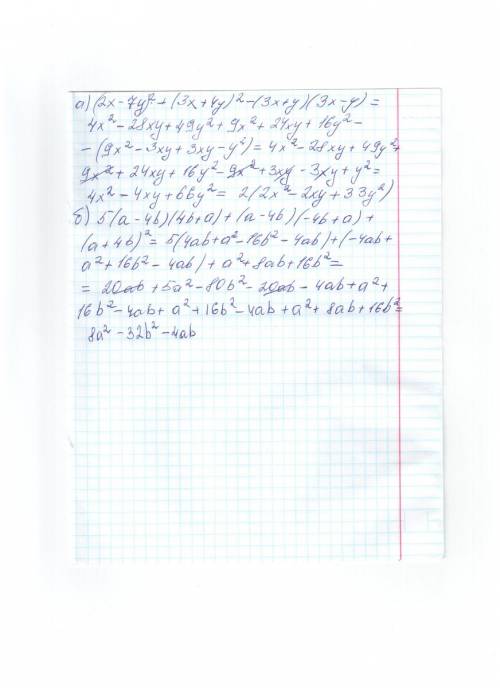 а) (2x - 7y)² + (3x + 4y)² - (3x + y)(3x - y) =
4x² - 28xy + 49y² + 9x² + 24xy + 16y² -
- (9x² - 3xy + 3xy - y²) = 4x² - 28xy + 49y² +
9x² + 24xy + 16y² - 9x² + 3xy - 3xy + y² =
4x² - 4xy + 66y² = 2(2x² - 2xy + 33y²)
б) 5(a - 4b)(4b + a) + (a - 4b)(-4b + a) +
(a + 4b)² = 5(4ab + a² - 16b² - 4ab) + (-4ab +
a² + 16b² - 4ab) + a² + 8ab + 16b² =
= 20ab + 5a² - 80b² - 20ab - 4ab + a² +
16b² - 4ab + a² + 16b² - 4ab + a² + 8ab + 16b² =
8a² - 32b² - 4ab